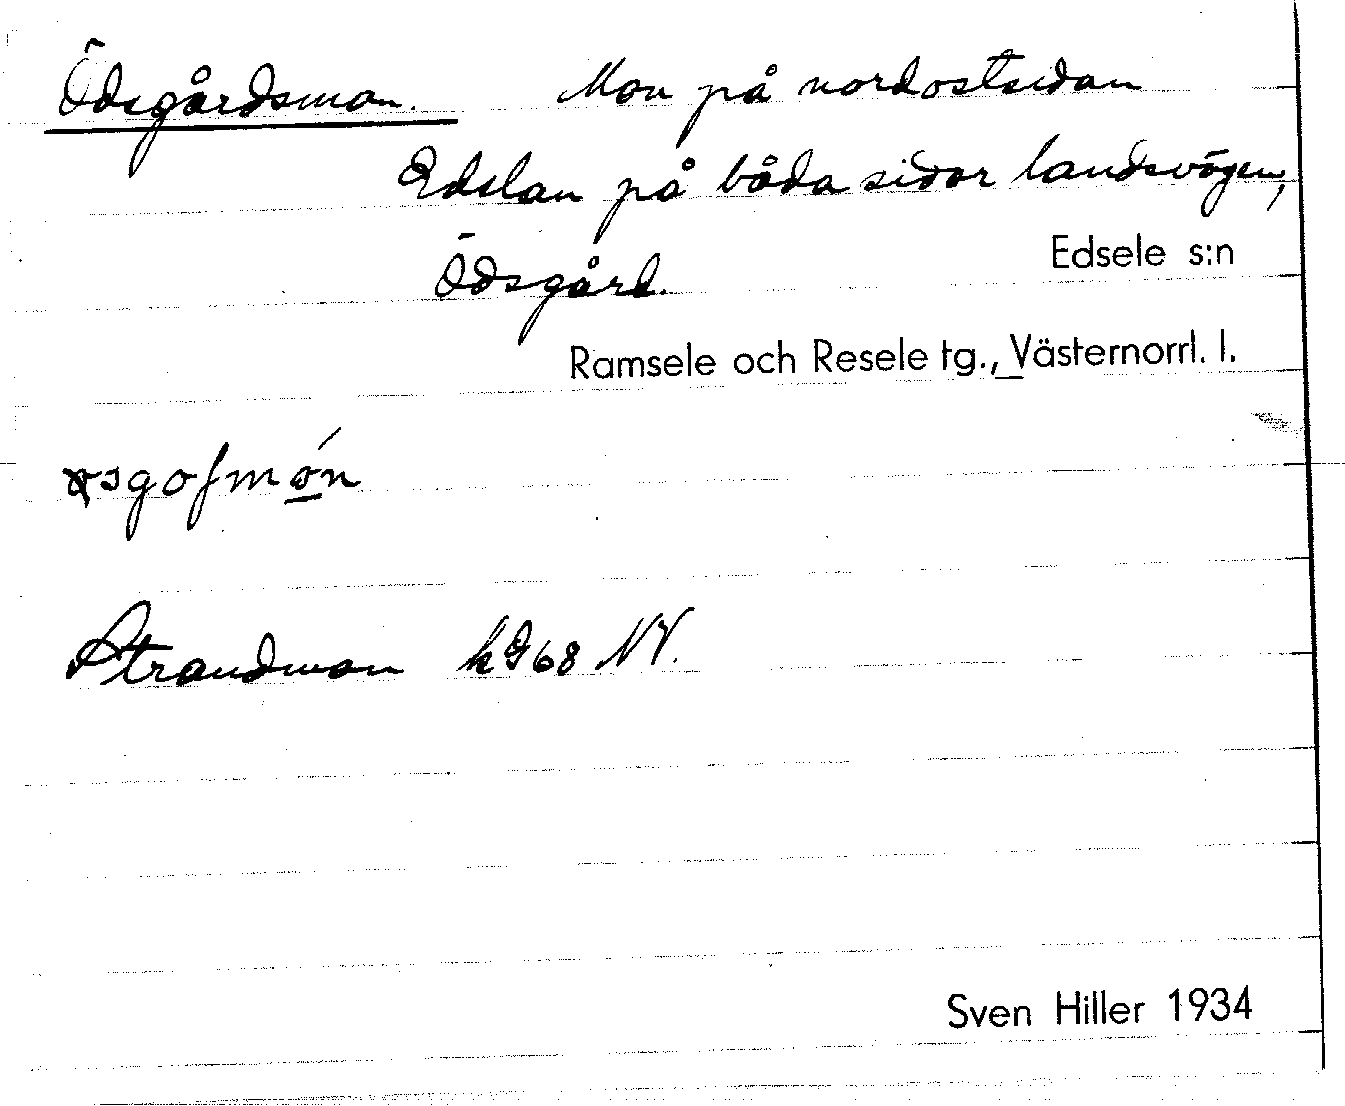 Ödsgårdsmon. Mon på nordostsidan
Edslan på båda sidor landsvägen,
Ödsgård.
Edsele s:n
Ramsele och Resele tg., Västernorrl. l.
Strandmon k968 NV.
Sven Hiller 1934